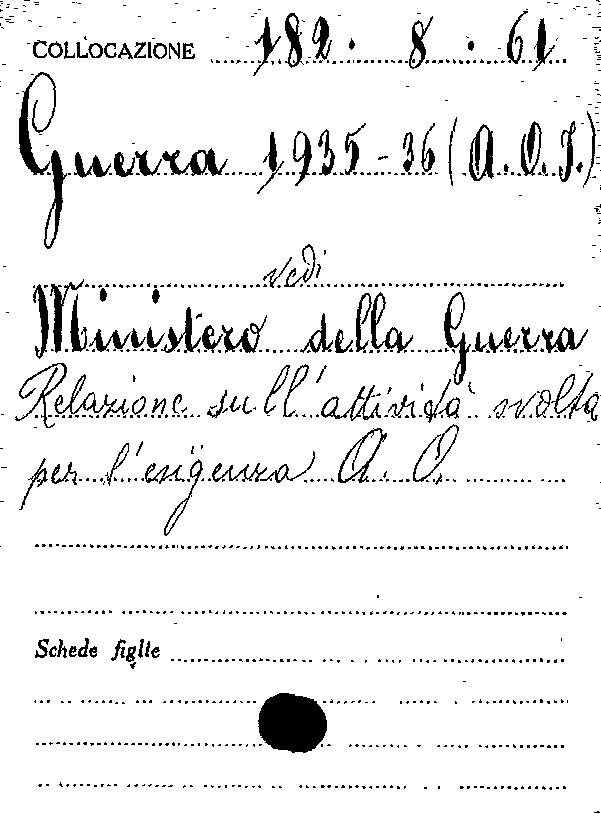 COLLOCAZIONE 182. 8. 61
Guerra 1935-36 (A.O.I.)
vedi
Ministero della Guerra
Relazione sull'attività svolta
per l'esigenza A.O.
Schede figlie